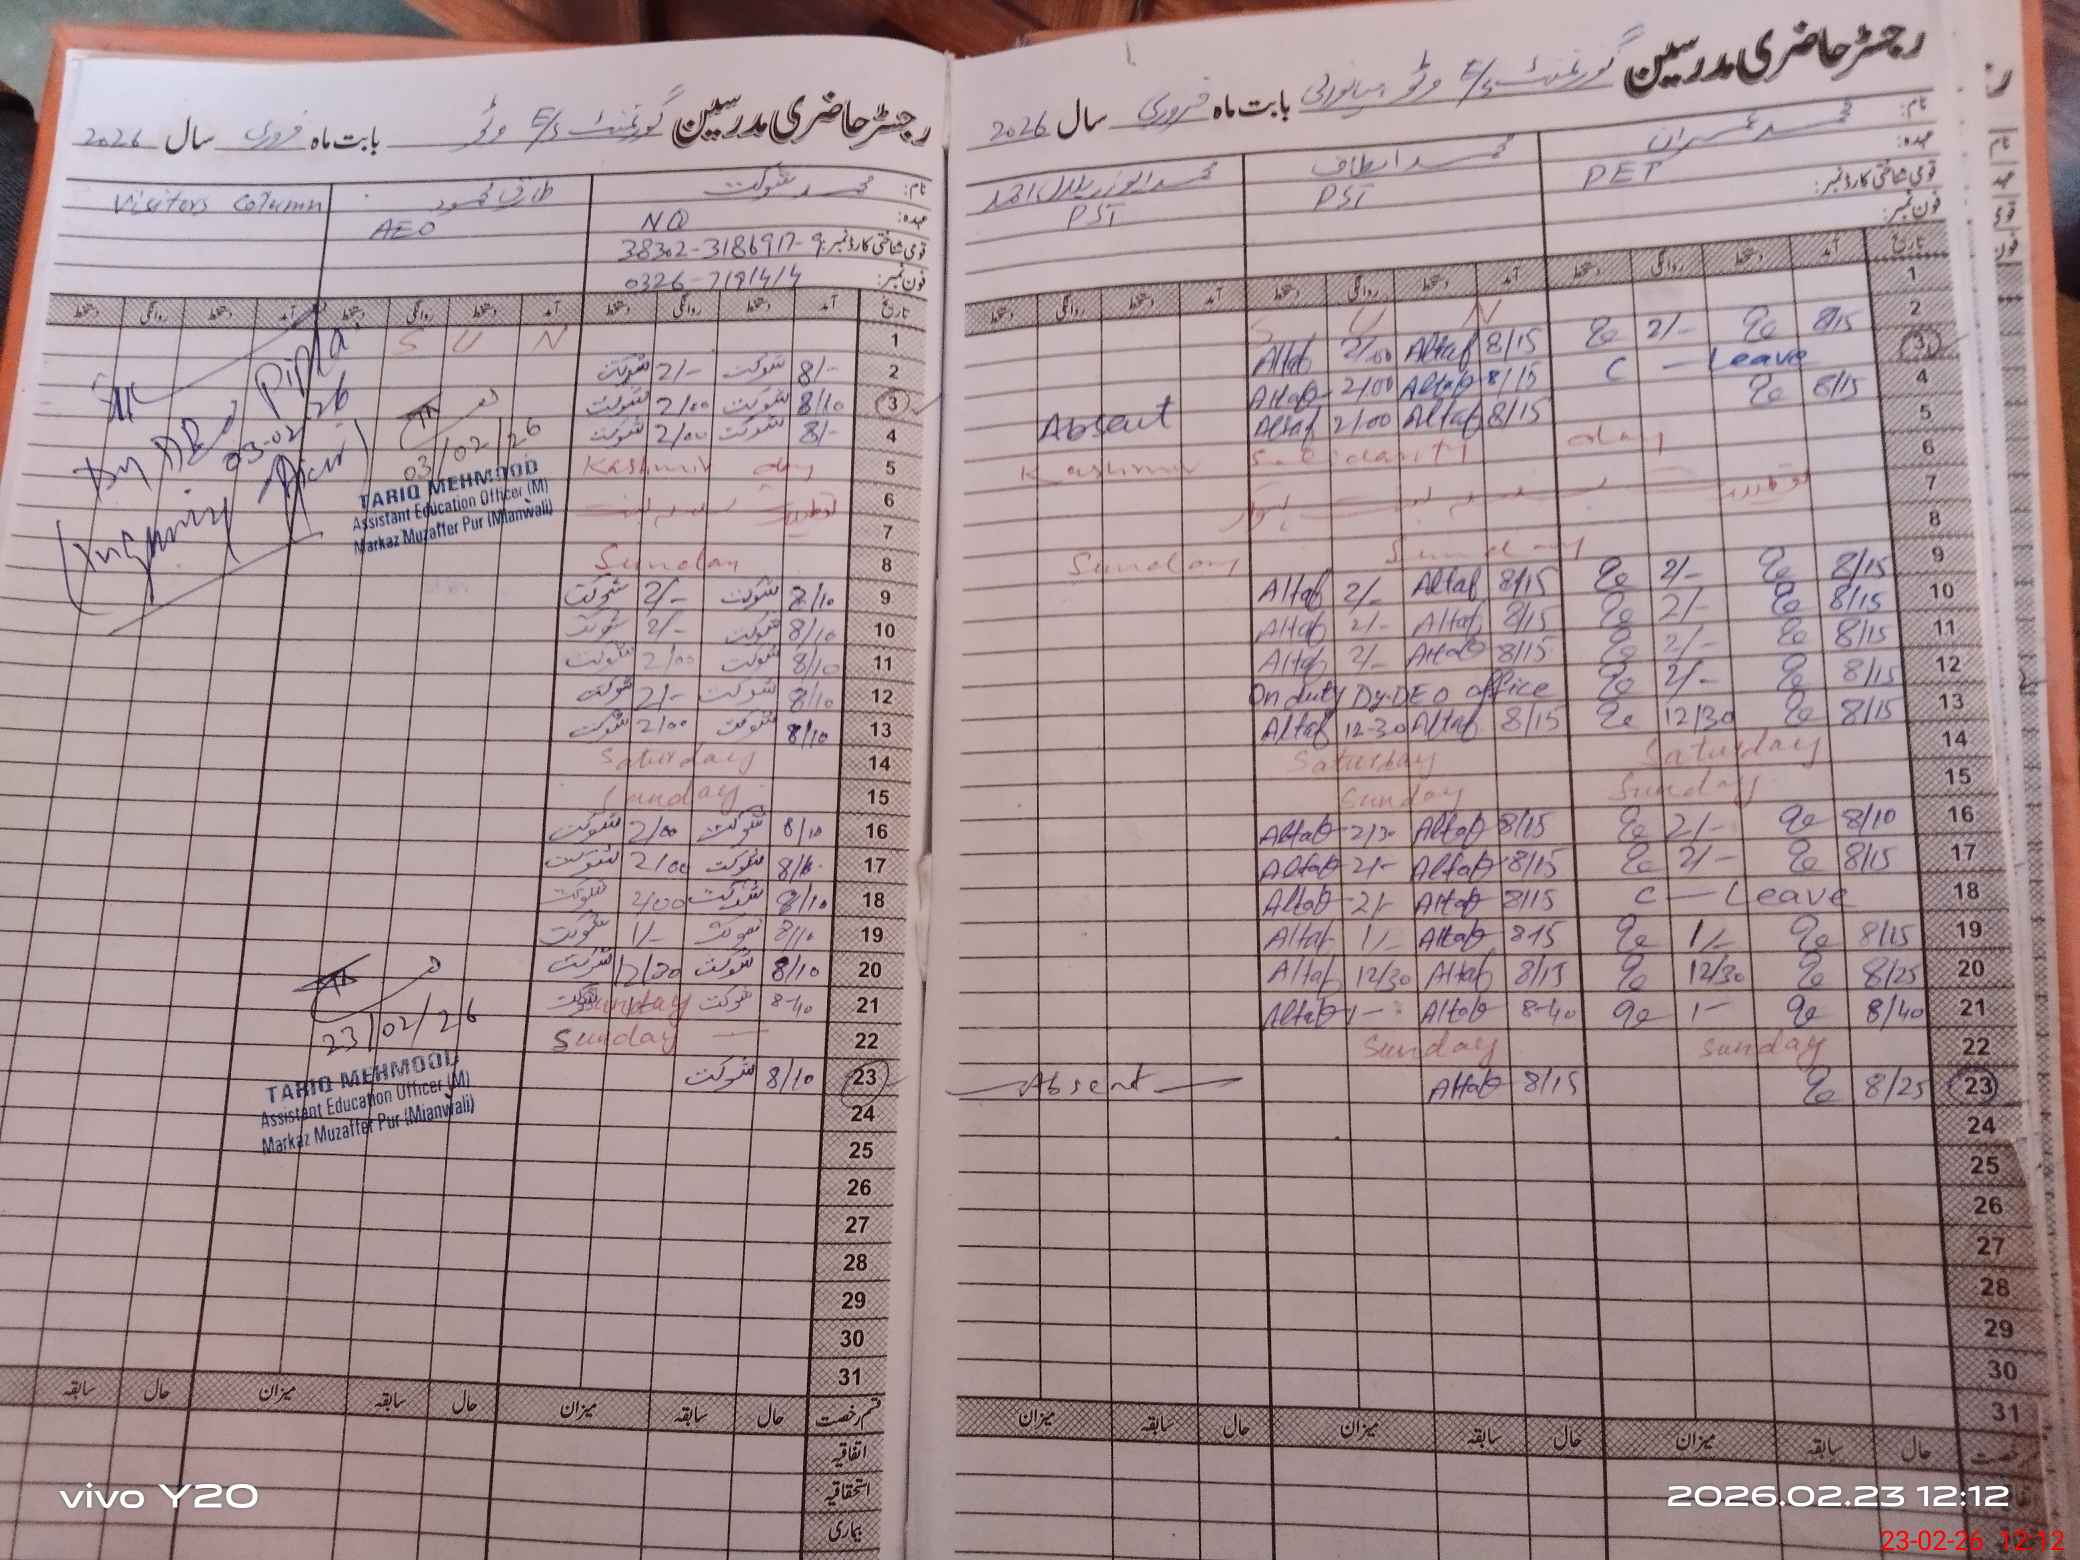 رجسٹر حاضری مدرسین گورنمنٹ E/S وٹو میانوالی بابت ماہ فروری سال 2026
نام: محمد عمران
محمد الطاف
عہدہ: PET
PST
PST
قومی شناختی کارڈ نمبر:
فون نمبر:
تاریخ آمد دستخط روانگی دستخط آمد دستخط روانگی دستخط آمد دستخط روانگی دستخط
1
S U N
2 8/15 2/- 8/15 Altaf 2/00 Altaf
3 C - Leave 8/15 Altaf 2/00 Altaf
4 8/15 8/15 Altaf 2/00 Altaf Absent
5 Kashmir Solidarity day
6
7
8 Sunday Sunday
9 8/15 2/- 8/15 Altaf 2/- Altaf
10 8/15 2/- 8/15 Altaf 2/- Altaf
11 8/15 2/- 8/15 Altaf 2/- Altaf
12 8/15 2/- On duty Dy.DEO office
13 8/15 12/30 8/15 Altaf 12-30 Altaf
14 Saturday Saturday
15 Sunday Sunday
16 8/10 2/- 8/15 Altaf 2/30 Altaf
17 8/15 2/- 8/15 Altaf 2/- Altaf
18 C - Leave 8/15 Altaf 2/- Altaf
19 8/15 1/- 8-15 Altaf 1/- Altaf
20 8/25 12/30 8/15 Altaf 12/30 Altaf
21 8/40 1- 8-40 Altaf 1- Altaf
22 Sunday Sunday
23 8/25 8/15 Altaf Absent
24
25
26
27
28
29
30
31
حال سابقہ میزان حال سابقہ میزان حال سابقہ میزان
رجسٹر حاضری مدرسین گورنمنٹ E/S وٹو بابت ماہ فروری سال 2026
نام: محمد شوکت
طارق محمود
Visitors Column
عہدہ: NQ
AEO
قومی شناختی کارڈ نمبر: 38302-3186917-9
فون نمبر: 0326-7191414
تاریخ آمد دستخط روانگی دستخط آمد دستخط روانگی دستخط آمد دستخط روانگی دستخط
1 S U N
2 8/- شوکت 2/- شوکت
3 8/10 شوکت 2/00 شوکت
4 8/- شوکت 2/00 شوکت
5 Kashmir day
6
7
8 Sunday
9 8/10 شوکت 2/- شوکت
10 8/10 شوکت 2/- شوکت
11 8/10 شوکت 2/00 شوکت
12 8/10 شوکت 2/- شوکت
13 8/10 شوکت 2/00 شوکت
14 Saturday
15 Sunday
16 8/10 شوکت 2/00 شوکت
17 شوکت 2/00 شوکت
18 8/10 شوکت 2/00 شوکت
19 8/10 شوکت 1/- شوکت
20 8/10 شوکت 12/30 شوکت
21 8-40 شوکت Sunday شوکت
22 Sunday
23 8/10 شوکت
24
25
26
27
28
29
30
31
قسم رخصت حال سابقہ میزان حال سابقہ میزان حال سابقہ
اتفاقیہ
استحقاقیہ
بیماری
03-02-26
03/02/26
TARIQ MEHMOOD
Assistant Education Officer (M)
Markaz Muzaffer Pur (Mianwali)
23/02/26
TARIQ MEHMOOD
Assistant Education Officer (M)
Markaz Muzaffer Pur (Mianwali)
vivo Y20
2026.02.23 12:12
23-02-26 12:12